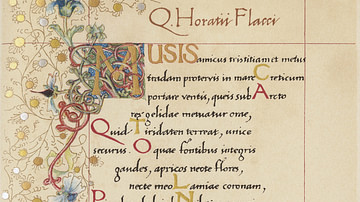 Q. Horatii Flacci
MUSIS amicus tristitiam et metus
tradam protervis in mare Creticum
portare ventis, queis sub Arcto
rex gelidae metuatur orae,
Quid Tiridaten terreat, unice
securus. O quae fontibus integris
gaudes, apricos necte flores,
necte meo Lamiae coronam,
P